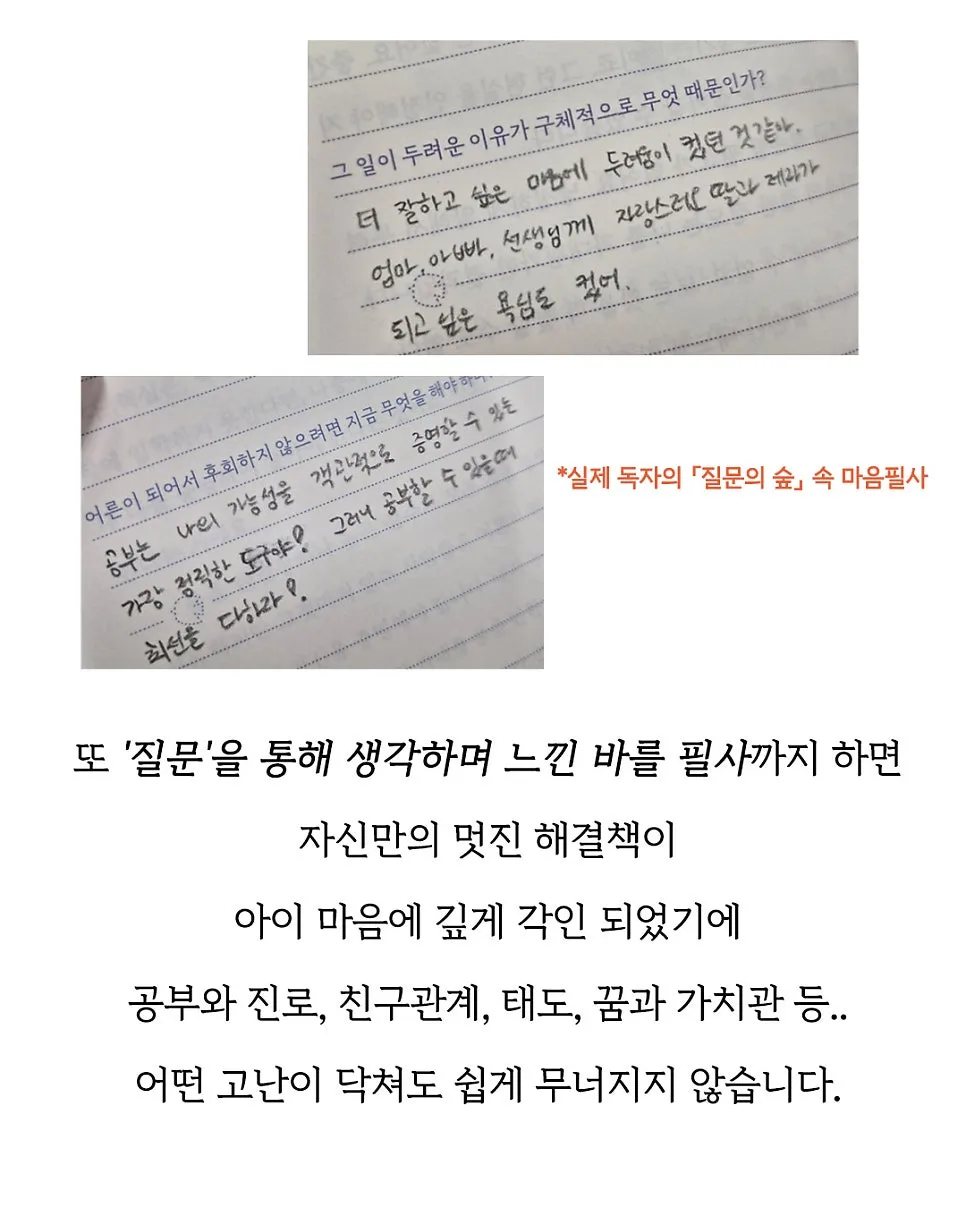 그 일이 두려운 이유가 구체적으로 무엇 때문인가?
더 잘하고 싶은 마음에 두려움이 컸던 것 같아.
엄마, 아빠, 선생님께 자랑스러운 딸과 제자가
되고 싶은 욕심도 컸어.
어른이 되어서 후회하지 않으려면 지금 무엇을 해야 하나?
공부는 나의 가능성을 객관적으로 증명할 수 있는
가장 정직한 도구야! 그러니 공부할 수 있을때
최선을 다하라!
*실제 독자의 「질문의 숲」 속 마음필사
또 '질문'을 통해 생각하며 느낀 바를 필사까지 하면
자신만의 멋진 해결책이
아이 마음에 깊게 각인 되었기에
공부와 진로, 친구관계, 태도, 꿈과 가치관 등..
어떤 고난이 닥쳐도 쉽게 무너지지 않습니다.